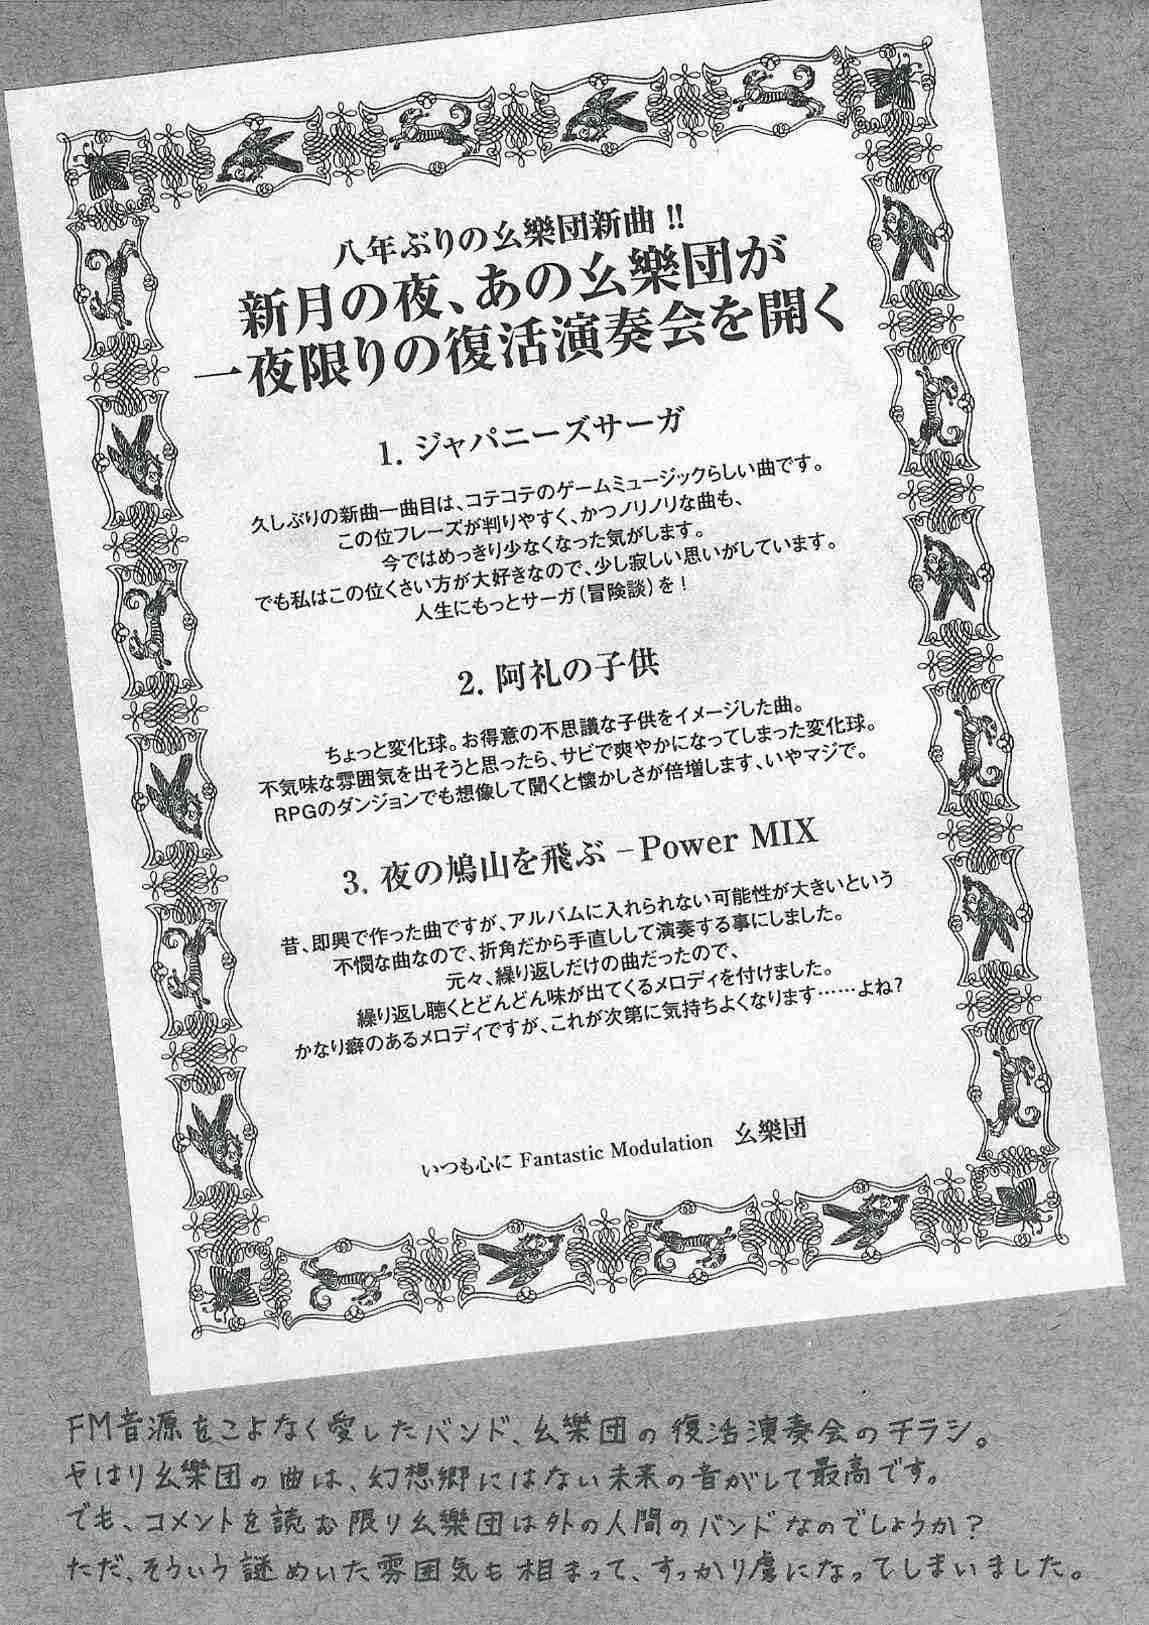 八年ぶりの幺樂団新曲!!
新月の夜、あの幺樂団が
一夜限りの復活演奏会を開く
1. ジャパニーズサーガ
久しぶりの新曲一曲目は、コテコテのゲームミュージックらしい曲です。
この位フレーズが判りやすく、かつノリノリな曲も、
今ではめっきり少なくなった気がします。
でも私はこの位くさい方が大好きなので、少し寂しい思いがしています。
人生にもっとサーガ(冒険談)を!
2. 阿礼の子供
ちょっと変化球。お得意の不思議な子供をイメージした曲。
不気味な雰囲気を出そうと思ったら、サビで爽やかになってしまった変化球。
RPGのダンジョンでも想像して聞くと懐かしさが倍増します、いやマジで。
3. 夜の鳩山を飛ぶ −Power MIX
昔、即興で作った曲ですが、アルバムに入れられない可能性が大きいという
不憫な曲なので、折角だから手直しして演奏する事にしました。
元々、繰り返しだけの曲だったので、
繰り返し聴くとどんどん味が出てくるメロディを付けました。
かなり癖のあるメロディですが、これが次第に気持ちよくなります……よね?
いつも心に Fantastic Modulation 幺樂団
FM音源をこよなく愛したバンド、幺樂団の復活演奏会のチラシ。
やはり幺樂団の曲は、幻想郷にはない未来の音がして最高です。
でも、コメントを読む限り幺樂団は外の人間のバンドなのでしょうか?
ただ、そういう謎めいた雰囲気も相まって、すっかり虜になってしまいました。